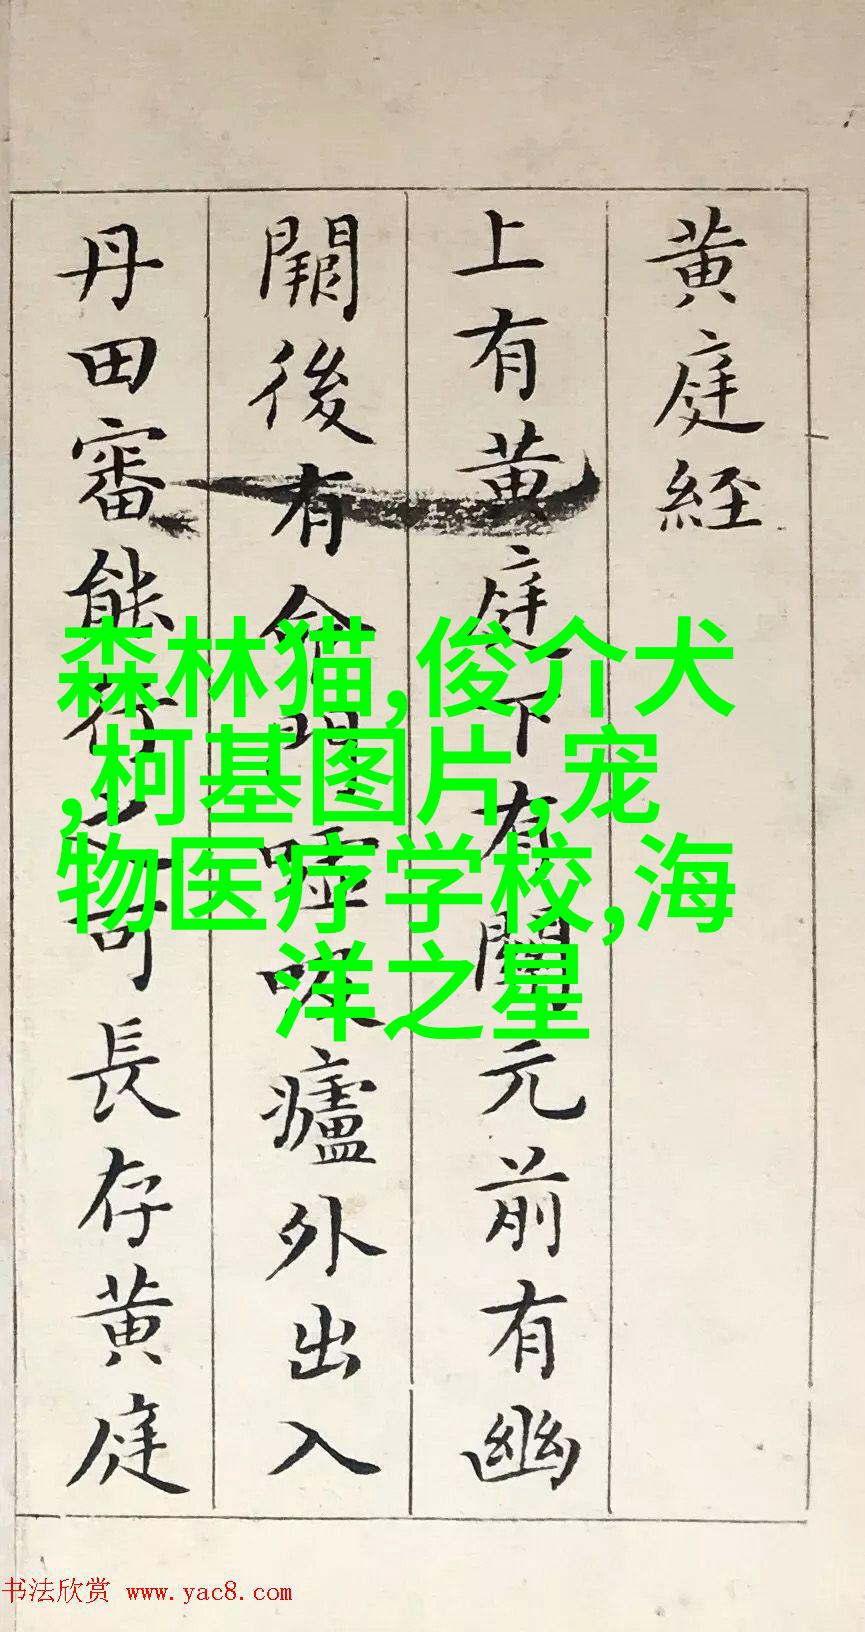 黄庭經
上有黄庭下有關元前有幽
闕後有命門嘘吸廬外出入
丹田審能行之可長存黄庭
森林猫,俊介犬
,柯基图片,宠
物医疗学校,海
洋之星
书法欣赏 www.yac8.com